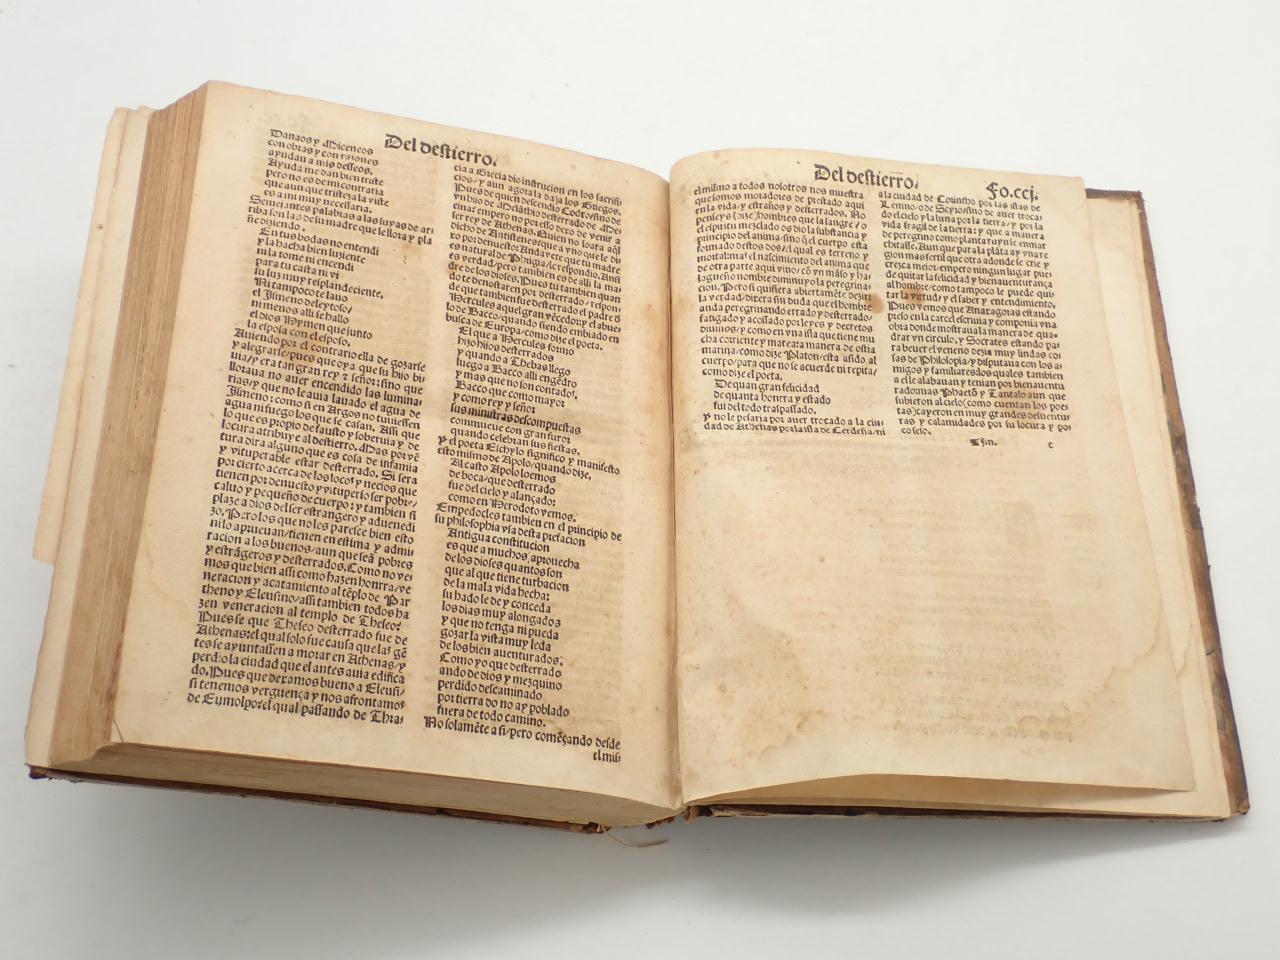 Del destierro.
Danaos y Miceneos
con obras y con razones
ayudan a mis desseos.
Ayuda me dan bien triste
pero no es de mi contraria
que aun que triste za la viste
es a mi muy necessaria.
Semejantes palabras a las suyas de arri
riba son las de su madre que le llora y pla
ñe diziendo.
En tus bodas no entendi
y la hacha bien luziente
ni la tome ni encendi
para tu casta ni vi
su luz muy resplandeciente.
Ni tampoco te lauo
el Ismeno deleytoso/
ni menos alli se hallo
el dios Hymen que junto
la esposa con el esposo.
Auiendo por el contrario ella de gozarse
y alegrarse/pues que oya que su hijo bi
uia/y era tan gran rey & señor: sino que
lloraua no auer encendido las lumina
rias/y que no le auia lauado el agua de
Ismeno: como si en Argos no tuuiessen
agua ni fuego los que se casan. Assi que
lo que es propio de fausto y soberuia y de
locura atribuye al destierro. Mas por vē
tura dira alguno que es cosa de infamia
y vituperable estar desterrado. Si sera
por cierto acerca de los locos y necios que
tienen por denuesto y vituperio ser pobre/
caluo y pequeño de cuerpo: y tambien si
plaze a dios del ser estrangero y aduenedi
zo. Pero los que no les paresce bien esto
ni lo aprueuan/tienen en estima y admi
racion a los buenos/aun que seā pobres
y estrāgeros y desterrados. Como no ve
mos que bien assi como hazen honrra/ve
neracion y acatamiento al tēplo de Par
theno y Eleusino/assi tambien todos ha
zen veneracion al templo de Theseo?
Pues se que Theseo desterrado fue de
Athenas: el qual solo fue causa que las gē
tes se ayuntassen a morar en Athenas/y
perdio la ciudad que el antes auia edifica
do. Pues que dexamos bueno a Eleusi/
si tenemos verguença y nos afrontamos
de Eumolpo: el qual passando de Thra/
cia a Grecia dio instrucion en los sacrifi
cios/y aun agora la da/a los Griegos.
Pues de quien descendio Codro/sino de
vn hijo de Melātho desterrado de Me
cina: empero no por esso dexo de venir a
ser rey de Athenas. Quien no loara aquel
dicho de Antistenes: que a vno que le di
xo por denuesto: Anda vete que tu madre
es natural de Phrigia: le respondio. Assi
es verdad/pero tambien es de alli la ma
dre de los dioses. Pues tu tambien quan
do te denostaren por desterrado/respon
de que tambien fue desterrado el padre d
Hercules el gran vēcedor: y el abue
lo de Bacco/quando siendo embiado en
busca de Europa/como dize el poeta.
El que a Hercules formo
hizo hijos desterrados
y quando a Thebas llego
luego a Bacco alli engēdro
y mas que no son contados.
Bacco que como mayor
y como rey y señor
sus ministras descompuestas
commueue con gran furor
quando celebran sus fiestas.
Y el poeta Eschylo significo y manifesto
esto mismo de Apolo/quando dize.
Al casto Apolo loemos
de boca/que desterrado
fue del cielo y alançado:
como en Herodoto vemos.
Empedocles tambien en el principio de
su philosophia vsa desta prefacion
Antigua constitucion
es que a muchos aprouecha
de los dioses quantos son
que al que tiene turbacion
de la mala vida hecha:
su hado le de y conceda
los dias muy alongados
y que no tenga ni pueda
gozar la vista muy leda
de los bien auenturados.
Como yo que desterrado
ando de dios y mezquino
perdido descaminado
por tierra do no ay poblado
fuera de todo camino.
No solamēte a si/pero comēçando desde
el mis
Del destierro. Fo.ccj.
el mismo a todos nosotros nos muestra
que somos moradores de prestado aqui
en la vida/y estraños y desterrados. No
penseys (dize) hombres que la sangre/o
el espiritu mezclado os dio la substancia y
principio del anima: sino q̄ el cuerpo esta
formado destos dos/el qual es terreno y
mortal: mas el nascimiento del anima que
de otra parte aqui vino/cō vn māso y ha
lagueño nombre diminuyo la peregrina
cion. Pero si quisiera abiertamēte dezir
la verdad/dixera sin duda que el hombre
anda peregrinando errado y desterrado/
fatigado y acossado por leyes y decretos
diuinos/y como en vna isla que tiene mu
cha corriente y marea: a manera de ostia
marina/como dize Platon/esta asido al
cuerpo/para que no se acuerde ni repita/
como dize el poeta.
De quan gran felicidad
de quanta honrra y estado
fui del todo traspassado.
Y no le pesaria por auer trocado a la ciu
dad de Athenas por la isla de Cerdeña/ni
a la ciudad de Corintho por las islas de
Lemno/o de Scyro: sino de auer troca
do el cielo y la luna por la tierra/y por la
vida fragil de la tierra: y que a manera
de peregrino como planta tuyn se enmar
chitasse. Aun que para la plāta ay vna re
gion mas fertil que otra a donde se crie y
crezca mejor: empero ningun lugar pue
de quitar la felicidad y bienauenturança
al hombre/como tampoco le puede qui
tar la virtud/y el saber y entendimiento.
Pues vemos que Anaxagoras estando
preso en la carcel escriuia y componia vna
obra donde mostraua la manera de qua
drar vn circulo/y Socrates estando pa
ra beuer el veneno dezia muy lindas co
sas de Philosophia/y disputaua con los a
migos y familiares: los quales tambien
a el le alabauan y tenian por bienauentu
rado: mas Phaetō y Tantalo aun que
subieron al cielo (como cuentan los poe
tas) cayeron en muy grandes desuentu
ras y calamidades por su locura y po
co seso.
¶ Fin. c